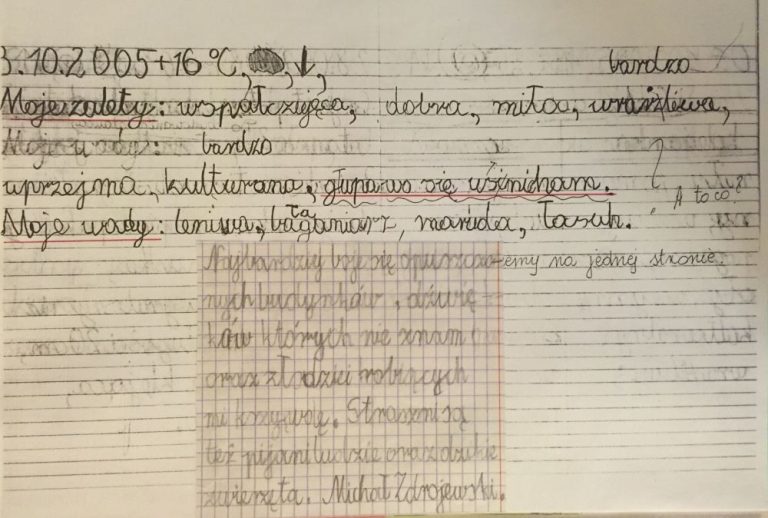 3.10.2005 +16 °C, ↓,
bardzo
Moje zalety: współczująca, dobra, miłca, wrażliwa,
bardzo
uprzejma, kulturana, głupawo się uśmicham.
A to co?
Moje wady: leniwa, bałaganiarz, maruda, łasuh.
Najbardziy boje się opuszczo-
emy na jednej stronie.
nych budynków, dźwię-
ków których nie znam
oraz złodzici robiących
mi kszywdę. Straszni są
też pijani ludzie oraz dzikie
zwierzęta. Michał Zdrojewski.